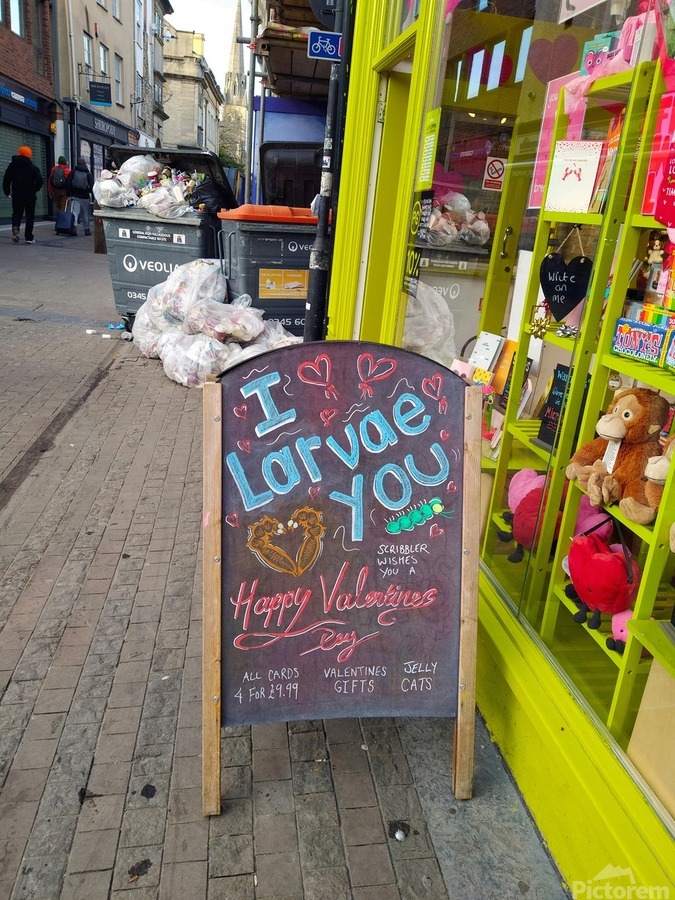 I
Larvae
You
SCRIBBLER
WISHES
YOU A
Happy Valentines
Day
ALL CARDS
4 FOR £9.99
VALENTINES
GIFTS
JELLY
CATS
VEOLIA
0345 60
Write
on
me
TONY'S
10%
Pictorem